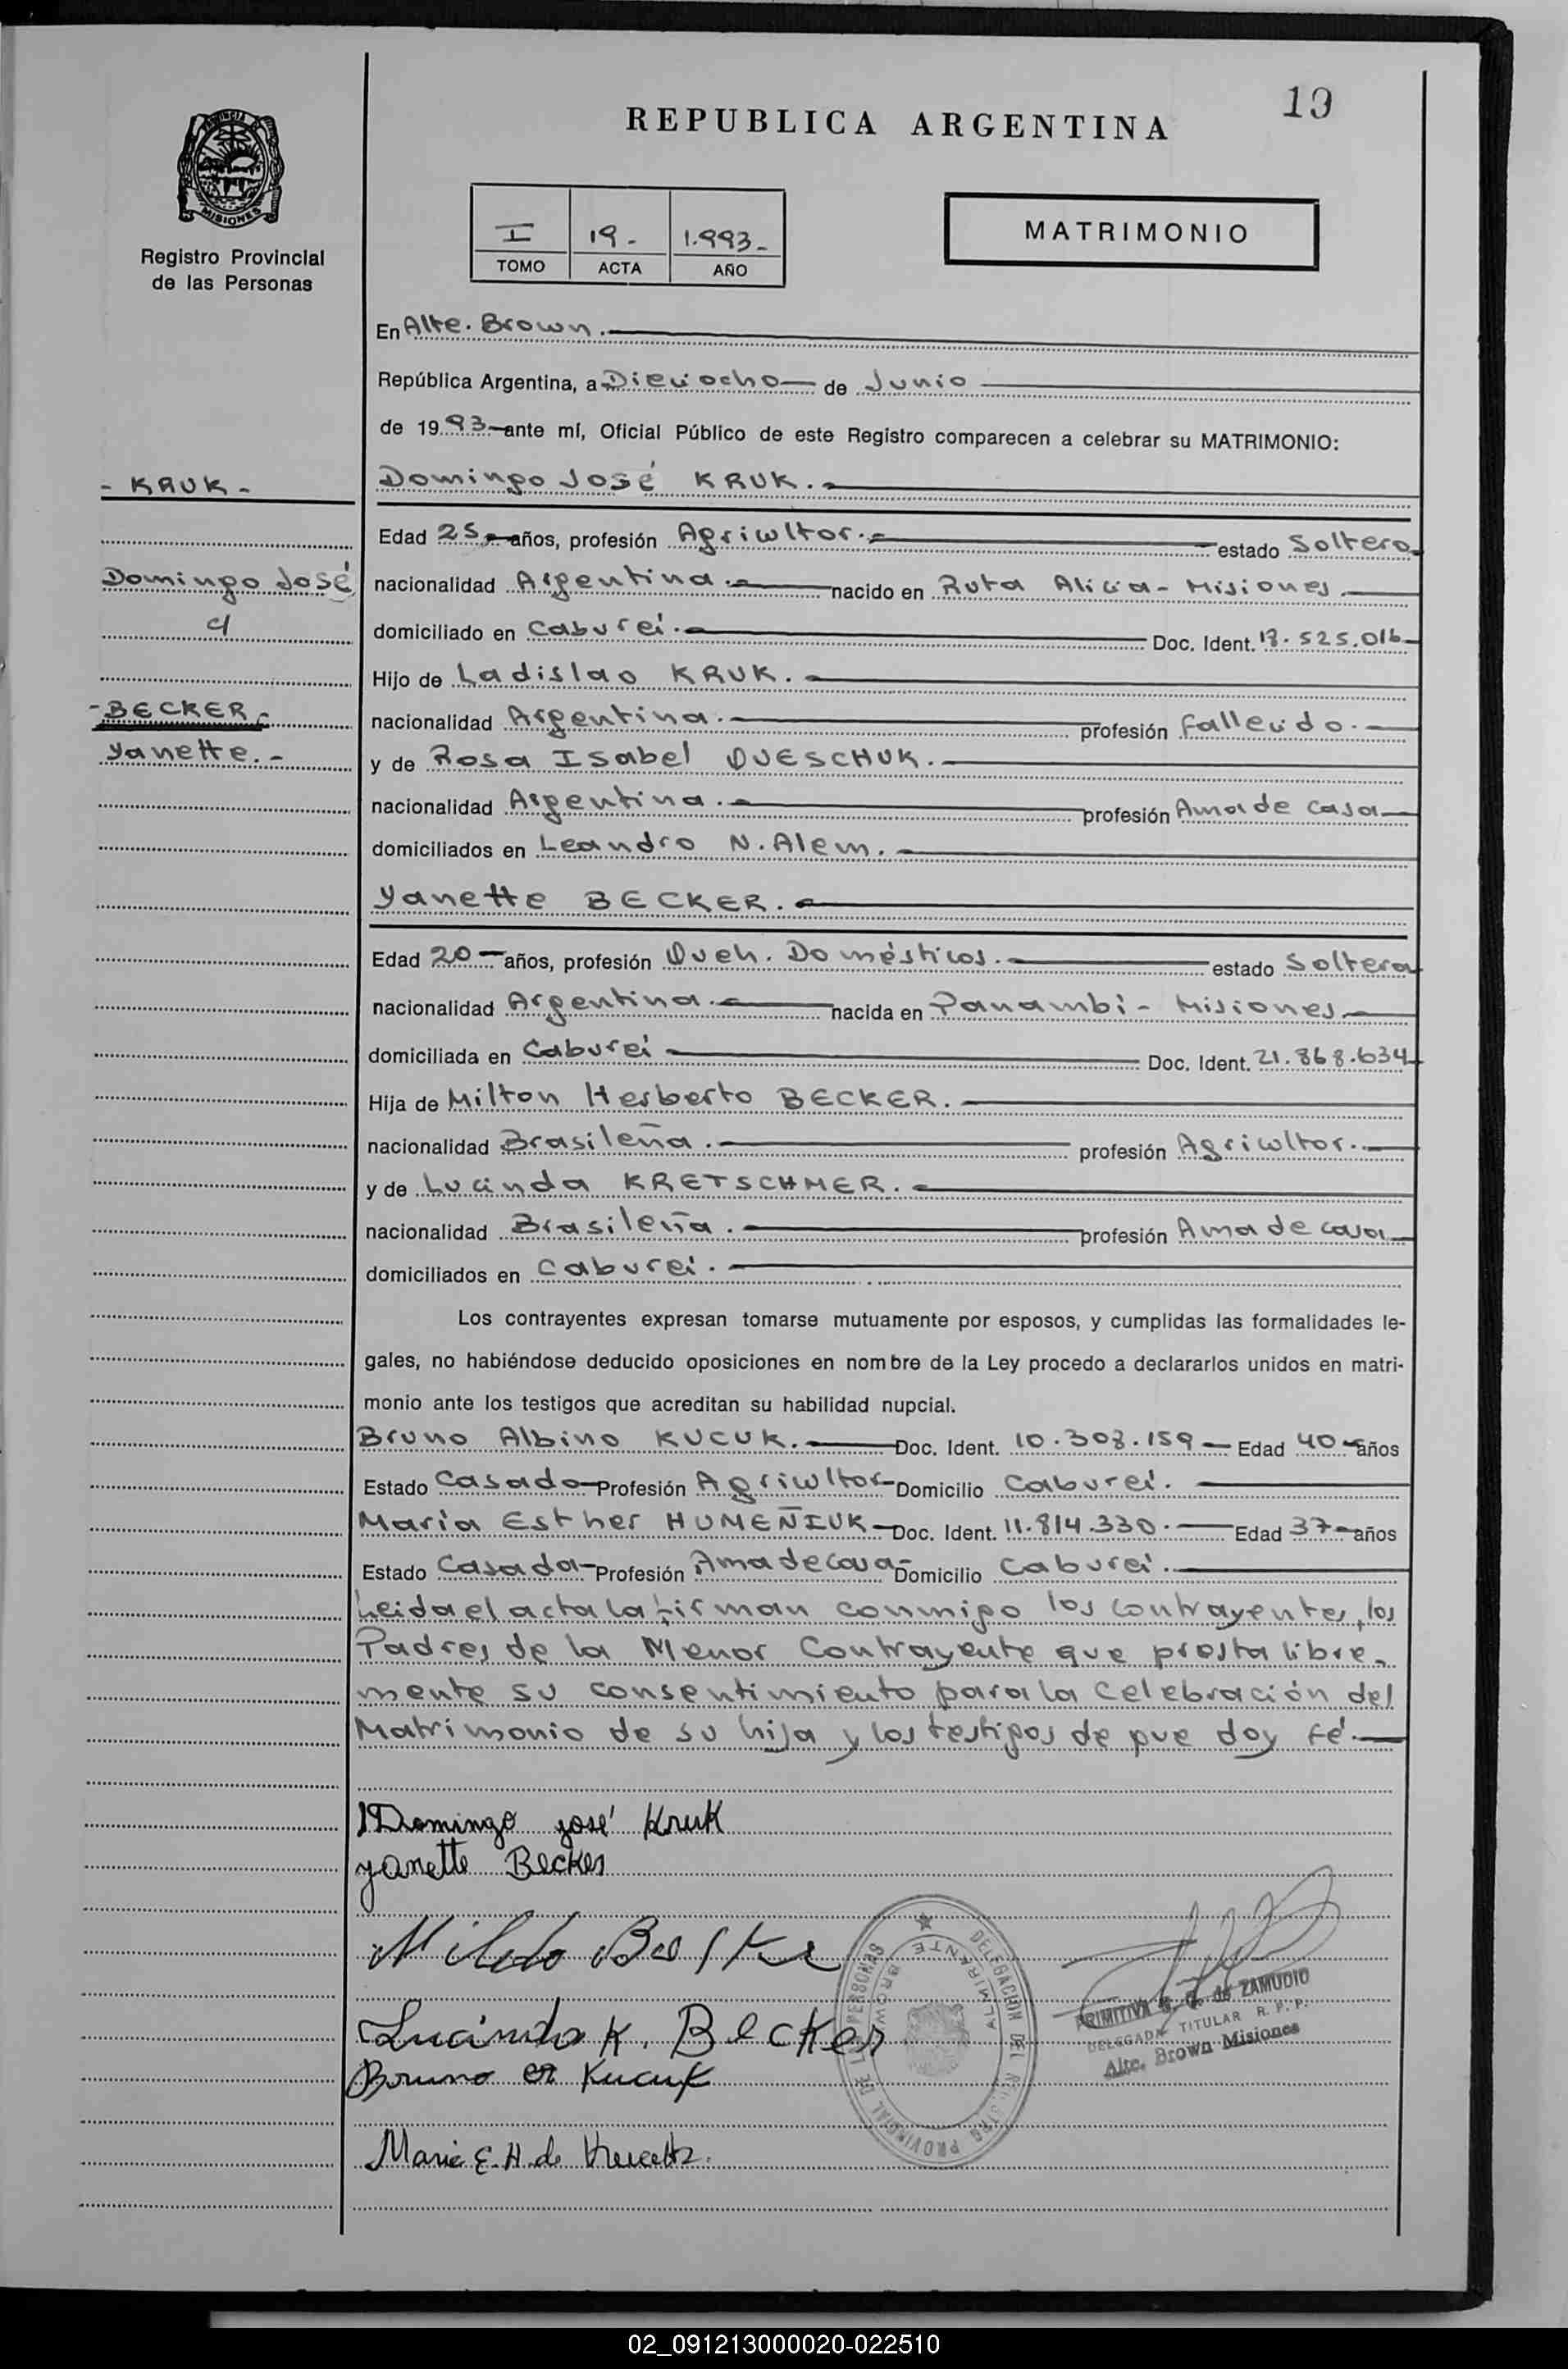 19
REPUBLICA ARGENTINA
PROVINCIA DE
MISIONES
Registro Provincial
de las Personas
I 19.- 1.993.-
TOMO ACTA AÑO
MATRIMONIO
En Alte. Brown.
República Argentina, a Dieciocho de Junio
de 1993 ante mí, Oficial Público de este Registro comparecen a celebrar su MATRIMONIO:
- KRUK -
Domingo José KRUK.
Edad 25 años, profesión Agricultor. estado Soltero
Domingo José
nacionalidad Argentina. nacido en Ruta Alicia - Misiones
c/
domiciliado en Caburei. Doc. Ident. 18.525.016
Hijo de Ladislao KRUK.
- BECKER -
nacionalidad Argentina. profesión fallecido.
Yanette.-
y de Rosa Isabel QUESCHUK.
nacionalidad Argentina. profesión Ama de casa
domiciliados en Leandro N. Alem.
Yanette BECKER.
Edad 20 años, profesión Queh. Domésticos. estado Soltera
nacionalidad Argentina. nacida en Panambi - Misiones
domiciliada en Caburei Doc. Ident. 21.868.634
Hija de Milton Herberto BECKER.
nacionalidad Brasileña. profesión Agricultor.
y de Lucinda KRETSCHMER.
nacionalidad Brasileña. profesión Ama de casa
domiciliados en Caburei.
Los contrayentes expresan tomarse mutuamente por esposos, y cumplidas las formalidades le-
gales, no habiéndose deducido oposiciones en nombre de la Ley procedo a declararlos unidos en matri-
monio ante los testigos que acreditan su habilidad nupcial.
Bruno Albino KUCUK. Doc. Ident. 10.308.159 Edad 40 años
Estado Casado Profesión Agricultor Domicilio Caburei.
María Esther HUMEÑIUK Doc. Ident. 11.814.330. Edad 37 años
Estado Casada Profesión Ama de casa Domicilio Caburei.
Leida el acta la firman conmigo los contrayentes, los
Padres de la Menor Contrayente que presta libre-
mente su consentimiento para la celebración del
Matrimonio de su hija y los testigos de que doy fé.
Domingo José Kruk
Yanette Becker
Lucinda K. Becker
Bruno Kucuk
Maria E. H. de
DELEGACION DEL REGISTRO PROVINCIAL DE LAS PERSONAS
ALMIRANTE BROWN
PRIMITIVA G. de ZAMUDIO
DELEGADA TITULAR R. P. P.
Alte. Brown Misiones
02_091213000020-022510